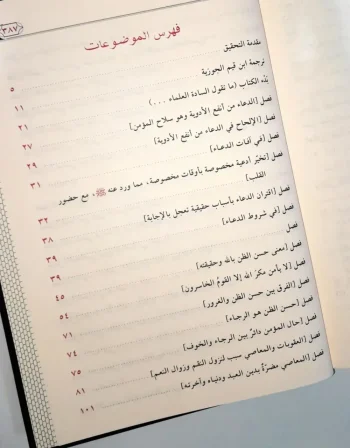 ٣٨٧
فهرس الموضوعات
مقدمة التحقيق
ترجمة ابن قيم الجوزية ٥
بدء الكتاب (ما تقول السادة العلماء ...) ١١
فصل [الدعاء من أنفع الأدوية وهو سلاح المؤمن] ٢١
فصل [الإلحاح في الدعاء من أنفع الأدوية] ٢٧
فصل [في آفات الدعاء] ٢٩
فصل [تخيّر أدعية مخصوصة بأوقات مخصوصة، مما ورد عنه ﷺ، مع حضور القلب] ٣١
فصل [اقتران الدعاء بأسباب حقيقية تعجل بالإجابة] ٣٢
فصل [في شروط الدعاء] ٣٨
فصل ٣٩
فصل [معنى حسن الظن بالله وحقيقته] ٣٩
فصل [لا يأمن مكر الله إلا القوم الخاسرون] ٤٥
فصل [الفرق بين حسن الظن والغرور] ٥٤
فصل [حسن الظن هو الرجاء] ٧١
فصل [حال المؤمن دائرٌ بين الرجاء والخوف] ٧٤
فصل [العقوبات والمعاصي سبب لنزول النقم وزوال النعم] ٧٥
فصل [المعاصي مضرّة بدين العبد ودنياه وآخرته] ٨١
١٠١